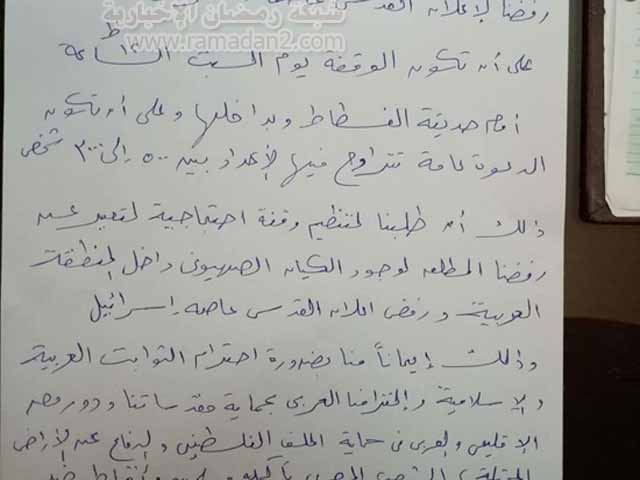 شبكة رمضان الإخبارية
www.ramadan2.com
رفضنا لإعلان القدس
على أن تكون الوقفة يوم السبت الساعة
أمام حديقة الفسطاط وبداخلها وعلى أن تكون
الدعوة عامة تتراوح فيها الأعداد بين ٥٠٠ إلى ٣٠٠٠ شخص
ذلك أن طلبنا لتنظيم وقفة احتجاجية لتعبير عن
رفضنا المطلق لوجود الكيان الصهيوني داخل المنطقة
العربية ورفض اعلان القدس عاصمة إسرائيل
وذلك إيماناً منا بضرورة احترام الثوابت العربية
والإسلامية والتزامنا العربي بحماية مقدساتنا ودور مصر
الإقليمي والعربي في حماية الملف الفلسطيني والدفاع عن الأراضي
المحتلة الشعب المصري